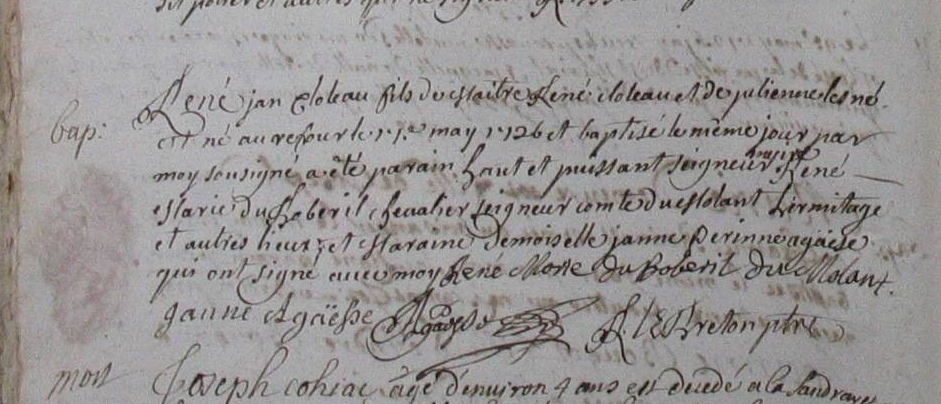 René jan Cloteau fils de Maître René Cloteau et de julienne les né
bap: est né au refour le 11e may 1726 et baptisé le même jour par
moy sousigné a été parain haut et puissant seigneur messire René
Marie du Boberil chevalier seigneur comte du Molant Lermitage
et autres lieux, et Maraine Demoiselle janne Perinne agaësse
qui ont signé avec moy René Marie du Boberil du Molant.
janne Agaësse Agaësse R. le Breton ptre
mort Joseph cohiac âgé d'environ 4 ans est decedé a la